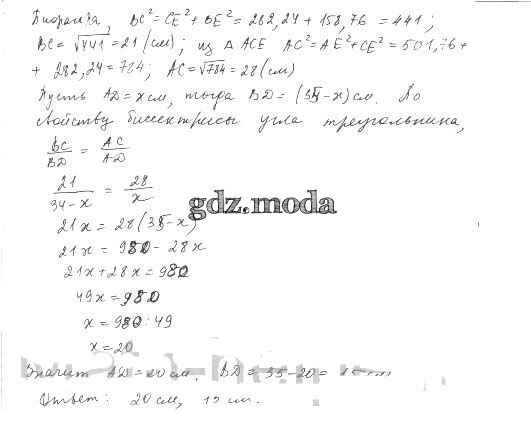 Пифагора, BC² = CE² + BE² = 282,24 + 158,76 = 441;
BC = √441 = 21 (см); из Δ ACE AC² = AE² + CE² = 501,76 +
+ 282,24 = 784; AC = √784 = 28 (см)
Пусть AD = x см, тогда BD = (35 - x) см. По
свойству биссектрисы угла треугольника,
BC/BD = AC/AD
21/34-x = 28/x
gdz.moda
21x = 28(35-x)
21x = 980 - 28x
21x + 28x = 980
49x = 980
x = 980 : 49
x = 20
Значит AD = 20 см, BD = 35 - 20 =
Ответ: 20 см, 15 см.